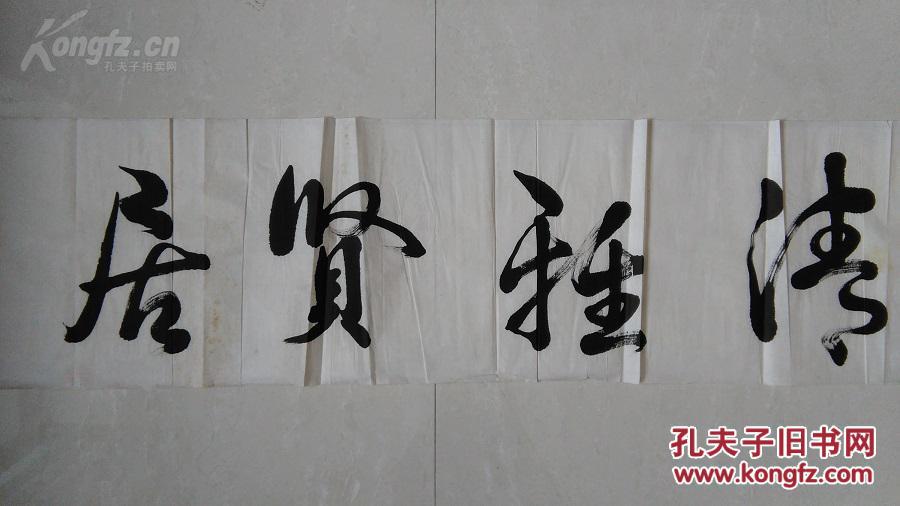 Kongfz.cn
孔夫子拍卖网
清雅賢居
孔夫子旧书网
www.kongfz.com